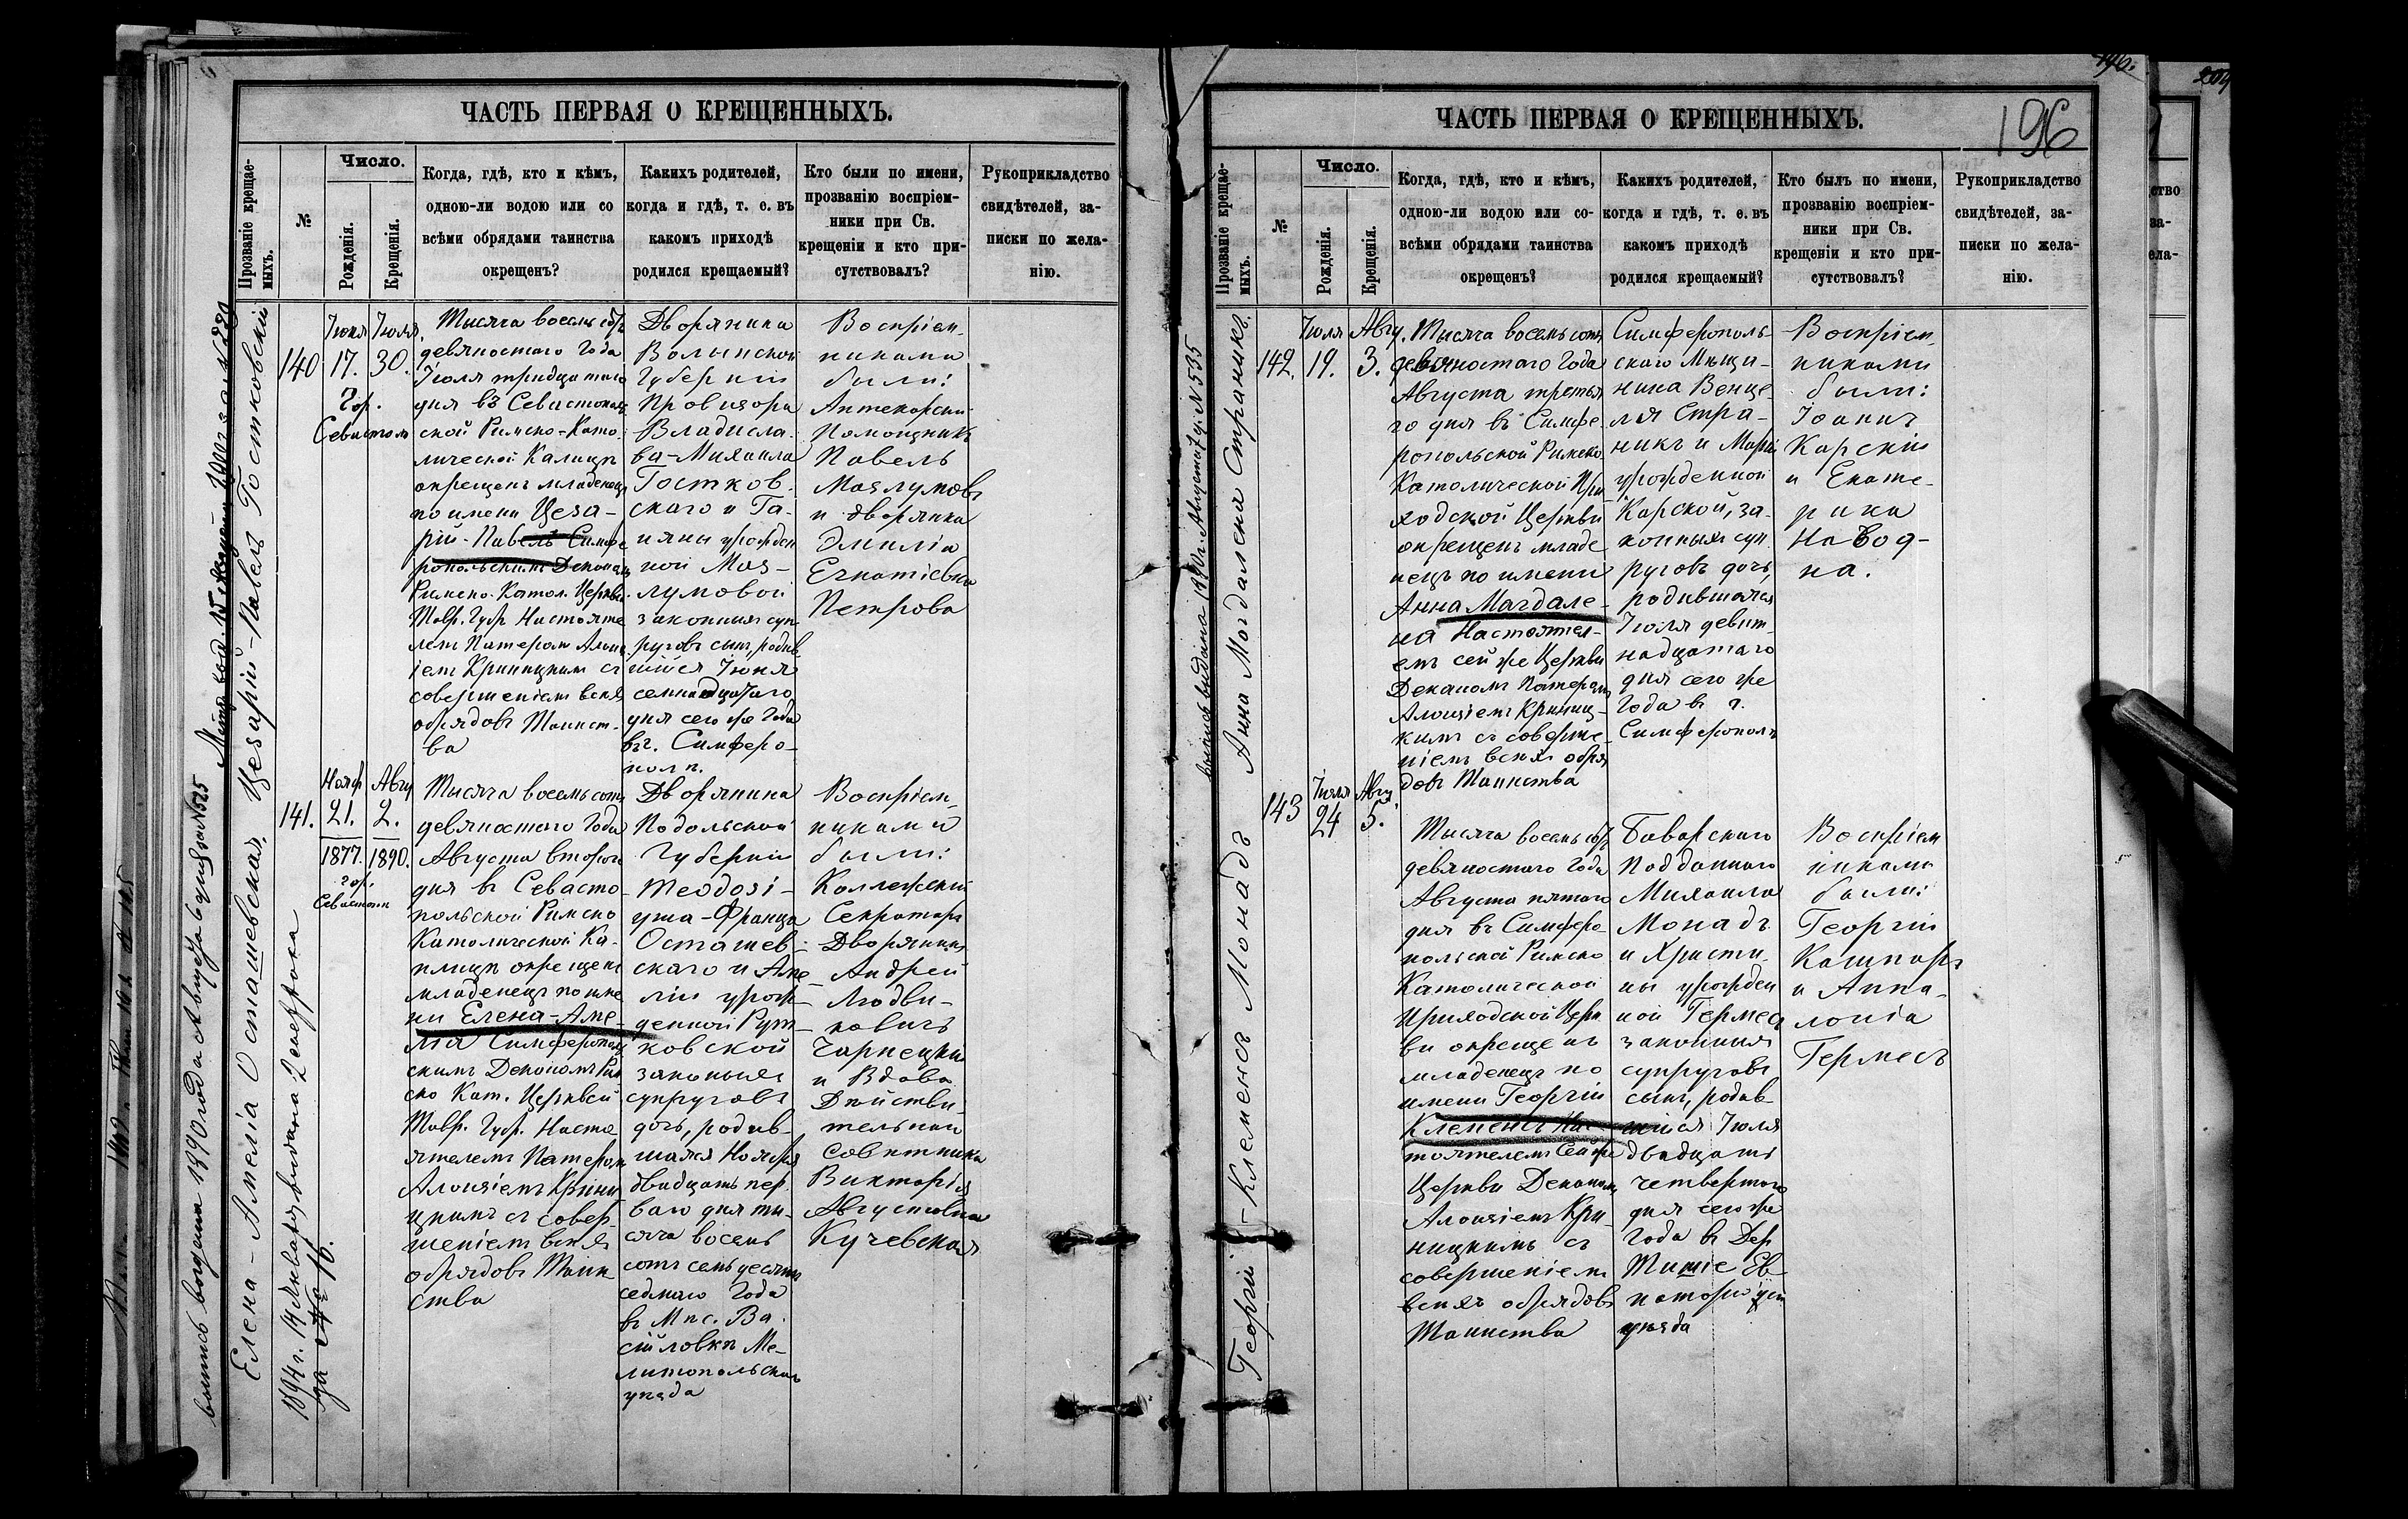 ЧАСТЬ ПЕРВАЯ О КРЕЩЕННЫХЪ.
Прозваніе крещае-
мыхъ.
№
Число.
Рожденія.
Крещенія.
Когда, гдѣ, кто и кѣмъ,
одною-ли водою или со
всѣми обрядами таинства
окрещенъ?
Какихъ родителей,
когда и гдѣ, т. е. въ
какомъ приходѣ
родился крещаемый?
Кто были по имени,
прозванію воспріем-
ники при Св.
крещеніи и кто при-
сутствовалъ?
Рукоприкладство
свидѣтелей, за-
писки по жела-
нію.
Цезарій-Павелъ Гостковскій
140
Іюня
17.
Гор.
Севастоп
Іюля
30.
Тысяча восемьсотъ
девяностаго Года
Іюля тридцатаго
дня въ Севастополь
ской Римско-Като-
лической Калицѣ
окрещенъ младенецъ
по имени Цеза-
рій-Павелъ Симфе
ропольскимъ Деканомъ
Римско-Катол. Церкви
Тавр. Губр Настояте
лемъ Патеромъ Алоиз
іемъ Криницкимъ съ
совершеніемъ всѣхъ
обрядовъ Таинст-
ва
Дворянина
Волынской
Губерніи
Провизора
Владисла-
ва-Михаила
Гостков-
скаго и Та-
ияны урожден
ной Маз-
лумовой
законныхъ суп
руговъ сынъ, родив
шійся Іюня
семнадцатаго
дня сего же Года
въ г. Симферо-
полѣ.
Воспріем-
никами
были:
Аптекарскій
Помощникъ
Павелъ
Мазлумовъ
и дворянка
Эмилія
Егнатіевна
Петрова
Елена-Амелія Осташевская
1894 г. 19 Января выдана 2 метрика
за № 16.
141.
Нояб
21.
1877.
гор.
Севастополь
Авгу
2.
1890.
Тысяча восемьсотъ
девяностаго Года
Августа втораго
дня въ Севасто-
польской Римско
Католической Ка-
плицѣ окрещенъ
младенецъ по име
ни Елена-Аме-
лія Симферополь
скимъ Деканомъ Рим
ско Кат. Церквей
Тавр. Губр. Насто
ятелемъ Патеромъ
Алоизіемъ Крини
цкимъ съ совер-
шеніемъ всѣхъ
обрядовъ Таин
ства
Дворянина
Подольской
Губерніи
Теодозі-
уша-Франца
Осташев-
скаго и Аме
ліи урож-
денной Рут-
ковской
законныхъ
супруговъ
дочь, родив-
шаяся Ноября
двадцать пер-
ваго дня ты-
сяча восемь
сотъ семьдесятъ
седмаго Года
въ Мѣс. Ва
сіловкѣ Ме-
литопольскаго
уѣзда
Воспріем-
никами
были:
Коллежскій
Секретарь
Дворянинъ
Андрей
Людви-
ковичъ
Чарнецкій
и Вдова
Дѣйстви-
тельнаго
Совѣтника
Викторія
Августовна
Кучевская
выпись выдана 1890 года Августа 6 дня за № 525
196.
204
ЧАСТЬ ПЕРВАЯ О КРЕЩЕННЫХЪ.
196
Прозваніе крещае-
мыхъ.
№
Число.
Рожденія.
Крещенія.
Когда, гдѣ, кто и кѣмъ,
одною-ли водою или со-
всѣми обрядами таинства
окрещенъ?
Какихъ родителей,
когда и гдѣ, т. е. въ
какомъ приходѣ
родился крещаемый?
Кто былъ по имени,
прозванію воспріем-
ники при Св.
крещеніи и кто при-
сутствовалъ?
Рукоприкладство
свидѣтелей, за-
писки по жела-
нію.
Анна Магдалена Страникъ.
142.
Іюля
19.
Авгу.
3.
Тысяча восемьсотъ
девяностаго Года
Августа третья
го дня въ Симфе
ропольской Римско
Католической При
ходской Церкви
окрещенъ младе
нецъ по имени
Анна Магдале-
на Настоятел-
емъ сей же Церкви
Деканомъ Патеромъ
Алоизіемъ Криниц-
кимъ съ соверше-
ніемъ всѣхъ обря
довъ Таинства
Симферополь-
скаго Мѣща-
нина Венце-
ля Стра-
никъ и Маріи
урожденной
Карской, за-
конныхъ суп
руговъ дочь,
родившаяся
Іюля девят-
надцатаго
дня сего же
Года въ г.
Симферополѣ
Воспріем-
никами
были:
Іоаннъ
Карскій
и Екате-
рина
Навод-
на.
Георгій-Клеменсъ Монадъ
143
Іюля
24
Авгу
5.
Тысяча восемьсотъ
девяностаго Года
Августа пятаго
дня въ Симферо-
польской Римско
Католической
Приходской Церк
ви окрещенъ
младенецъ по
имени Георгій
Клеменсъ Нас-
тоятелемъ Сей же
Церкви Деканомъ
Алоизіемъ Кри-
ницкимъ съ
совершеніемъ
всѣхъ обрядовъ
Таинства
Баварскаго
Подданнаго
Михаила
Монадъ
и Христи-
ны урожден
ной Гермесъ
законныхъ
супруговъ
сынъ, родив-
шійся Іюля
двадцать
четвертаго
дня сего же
Года въ Дер
Ташіе Ев-
паторійск
уѣзда
Воспріем
никами
были:
Георгій
Кашпаръ
и Аппа-
лонія
Гермесъ
ство
за-
ела-